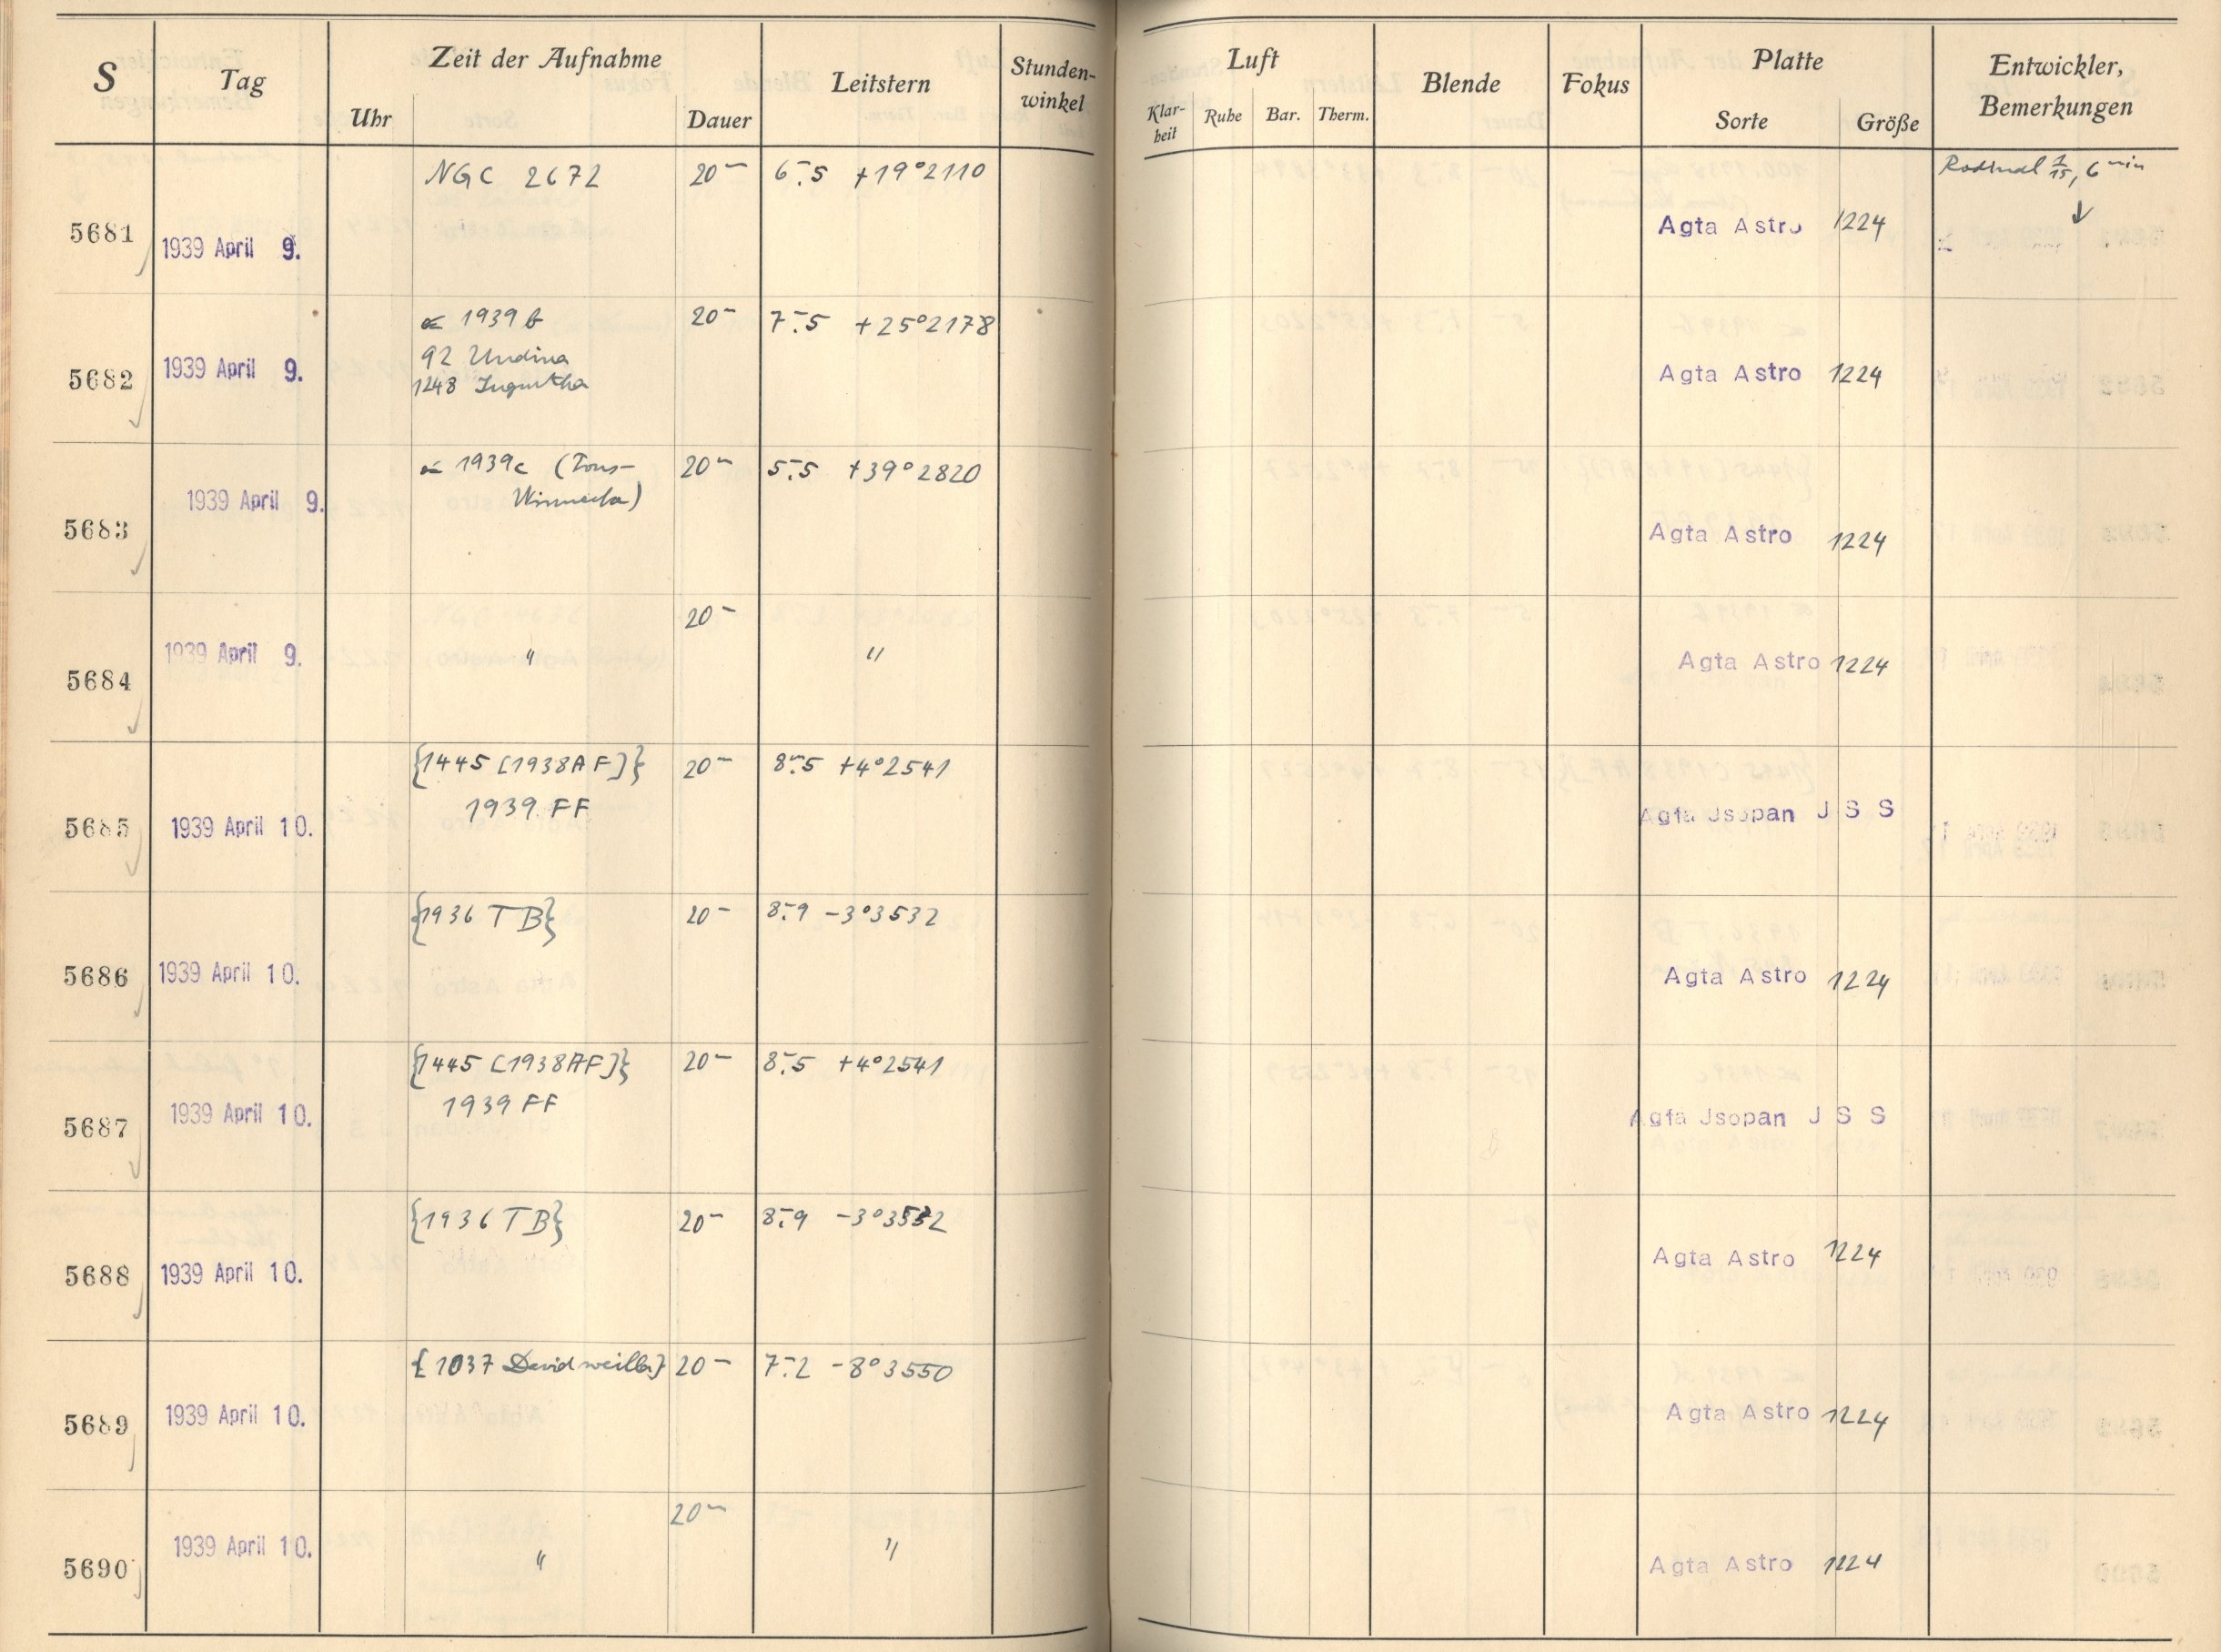 S Tag Zeit der Aufnahme Leitstern Stunden-winkel Luft Blende Fokus Platte Entwickler, Bemerkungen
Uhr Dauer Klar-heit Ruhe Bar. Therm. Sorte Größe
NGC 2672 20m 6m.5 +19°2110 Rodinal 1/15, 6 min
5681 1939 April 9. Agfa Astro 1224 ↓
☄ 1939b 20m 7m.5 +25°2178
92 Undina
5682 1939 April 9. 1248 Jugurtha Agfa Astro 1224
☄ 1939c (Pons- 20m 5m.5 +39°2820
Winnecke)
5683 1939 April 9. Agfa Astro 1224
20m
5684 1939 April 9. " " Agfa Astro 1224
{1445 [1938AF]} 20m 8m.5 +4°2541
1939 FF
5685 1939 April 10. Agfa Jsopan J S S
{1936 TB} 20m 8m.9 -3°3532
5686 1939 April 10. Agfa Astro 1224
{1445 [1938AF]} 20m 8m.5 +4°2541
1939 FF
5687 1939 April 10. Agfa Jsopan J S S
{1936 TB} 20m 8m.9 -3°3532
5688 1939 April 10. Agfa Astro 1224
{1037 Davidweilla} 20m 7m.2 -8°3550
5689 1939 April 10. Agfa Astro 1224
20m
5690 1939 April 10. " " Agfa Astro 1224